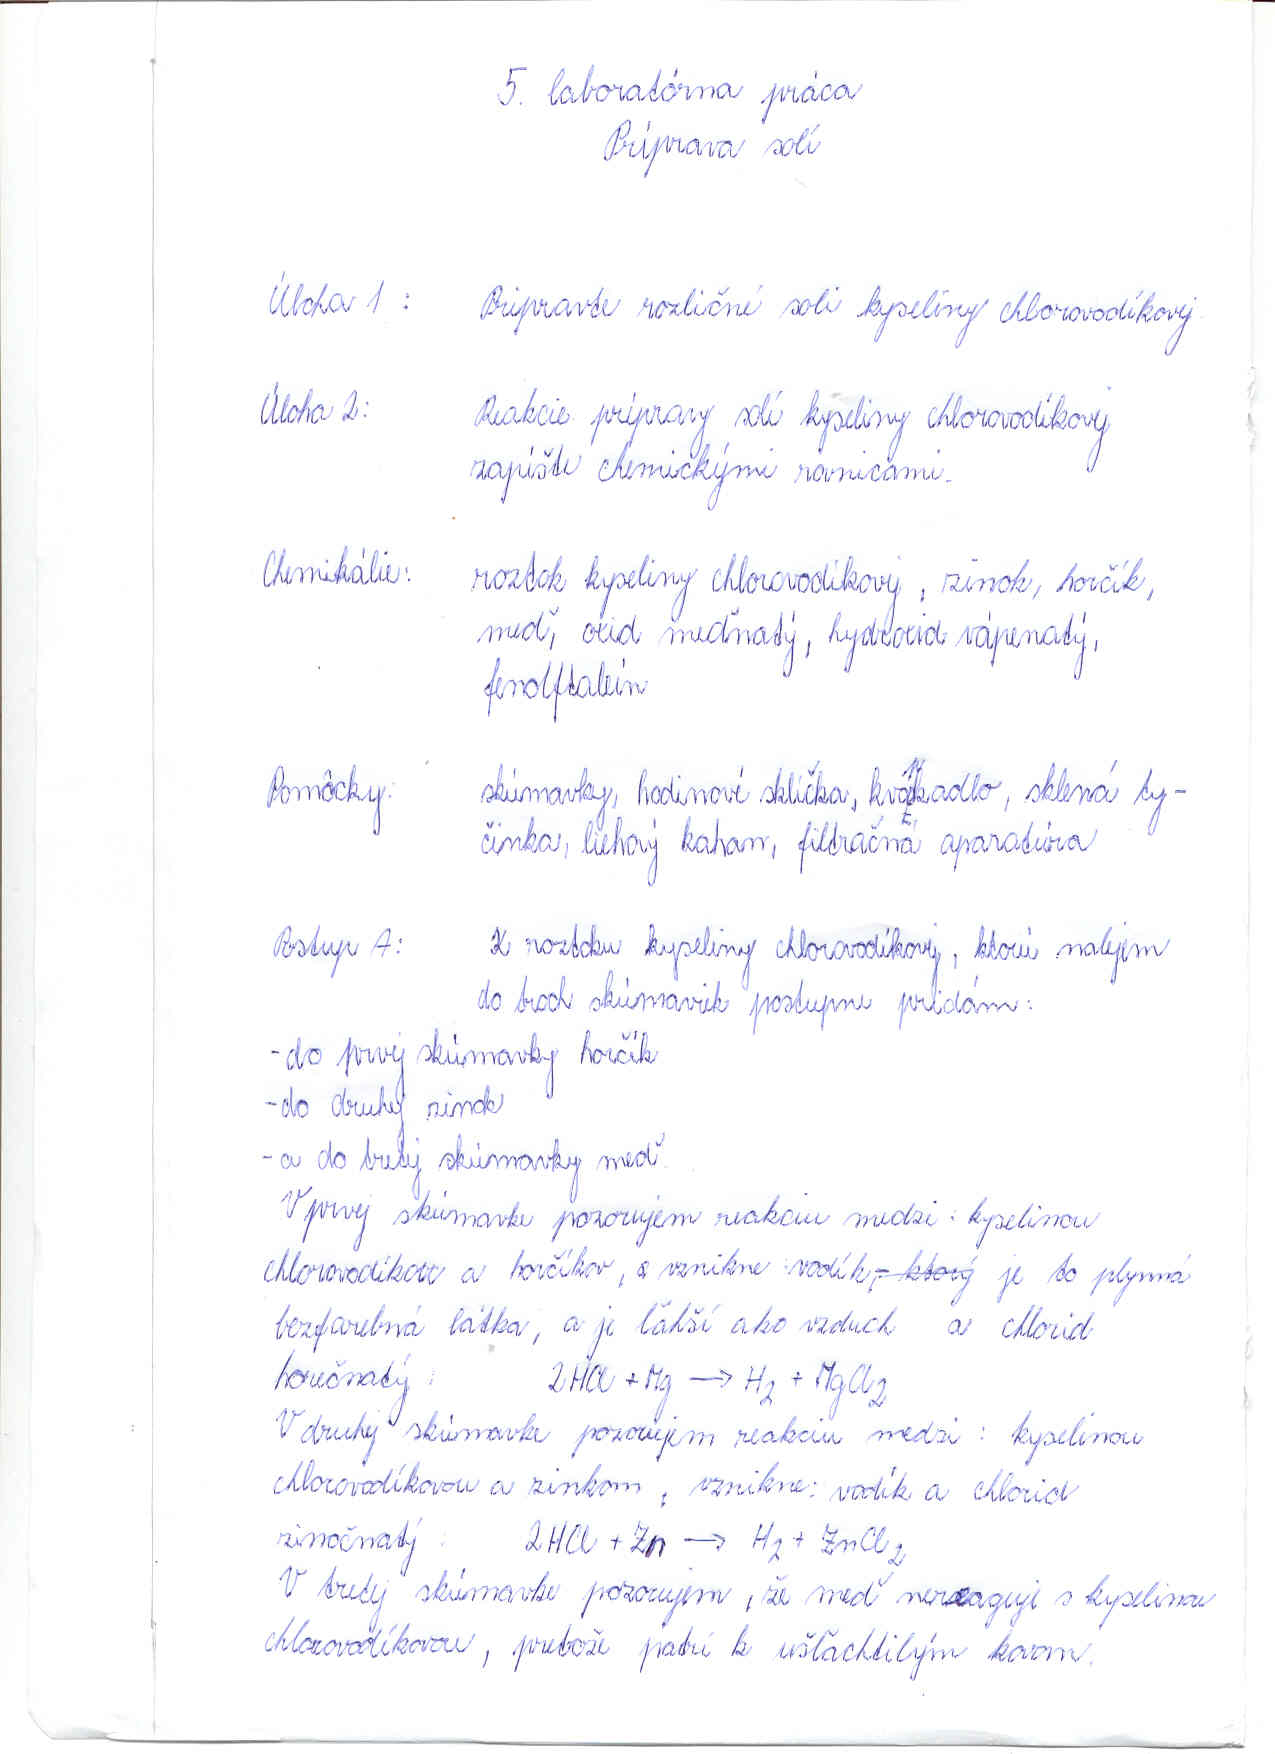 5. laboratórna práca
Príprava solí
Úloha 1: Pripravte rozličné soli kyseliny chlorovodíkovej.
Úloha 2: Reakcie prípravy solí kyseliny chlorovodíkovej
zapíšte chemickými rovnicami.
Chemikálie: roztok kyseliny chlorovodíkovej, zinok, horčík,
meď, oxid meďnatý, hydroxid vápenatý,
fenolftaleín
Pomôcky: skúmavky, hodinové sklíčka, kvapkadlo, sklená ty-
činka, liehový kahan, filtračná aparatúra
Postup A: K roztoku kyseliny chlorovodíkovej, ktorú nalejem
do troch skúmaviek postupne pridám:
- do prvej skúmavky horčík
- do druhej zinok
- a do tretej skúmavky meď.
V prvej skúmavke pozorujem reakciu medzi: kyselinou
chlorovodíkou a horčíkov, a vznikne vodík, ktorý je to plynná
bezfarebná látka, a je ľahší ako vzduch a chlorid
horečnatý: 2HCl + Mg → H₂ + MgCl₂
V druhej skúmavke pozorujem reakciu medzi: kyselinou
chlorovodíkovou a zinkom, vznikne: vodík a chlorid
zinočnatý: 2HCl + Zn → H₂ + ZnCl₂
V tretej skúmavke pozorujem, že meď nereaguje s kyselinou
chlorovodíkovou, pretože patrí k ušľachtilým kovom.